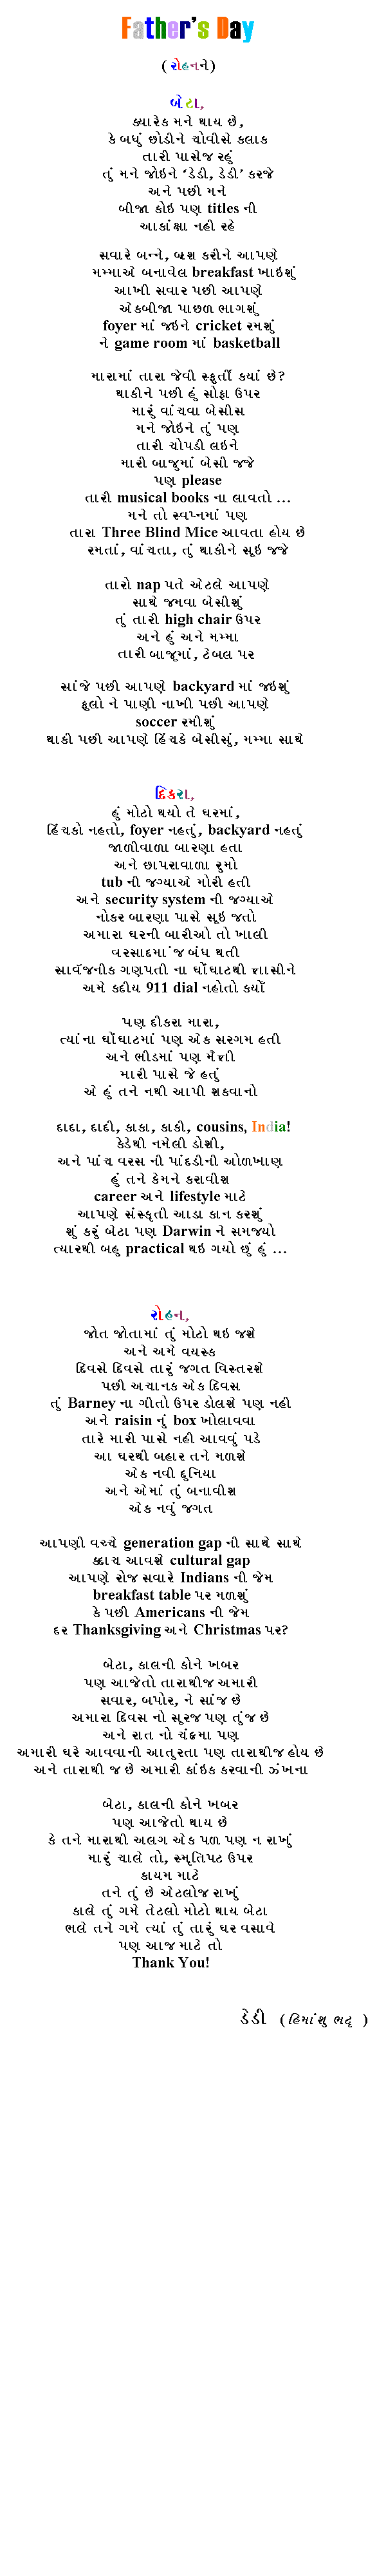 Father's Day
(રોહનને)
બેટા,
ક્યારેક મને થાય છે,
કે બધું છોડીને ચોવીસે કલાક
તારી પાસેજ રહું
તું મને જોઇને 'ડેડી, ડેડી' કરજે
અને પછી મને
બીજા કોઇ પણ titles ની
આકાંક્ષા નહી રહે
સવારે બન્ને, બ્રશ કરીને આપણે
મમ્માએ બનાવેલ breakfast ખાઇશું
આખી સવાર પછી આપણે
એકબીજા પાછળ ભાગશું
foyer માં જઇને cricket રમશું
ને game room માં basketball
મારામાં તારા જેવી સ્ફુર્તી કયાં છે?
થાકીને પછી હું સોફા ઉપર
મારું વાંચવા બેસીસ
મને જોઇને તું પણ
તારી ચોપડી લઇને
મારી બાજુમાં બેસી જજે
પણ please
તારી musical books ના લાવતો ...
મને તો સ્વપ્નમાં પણ
તારા Three Blind Mice આવતા હોય છે
રમતાં, વાંચતા, તું થાકીને સૂઇ જજે
તારો nap પતે એટલે આપણે
સાથે જમવા બેસીશું
તું તારી high chair ઉપર
અને હું અને મમ્મા
તારી બાજૂમાં, ટેબલ પર
સાંજે પછી આપણે backyard માં જઇશું
ફૂલો ને પાણી નાખી પછી આપણે
soccer રમીશું
થાકી પછી આપણે હિંચકે બેસીસું, મમ્મા સાથે
દિકરા,
હું મોટો થયો તે ઘરમાં,
હિંચકો નહતો, foyer નહતું, backyard નહતું
જાળીવાળા બારણા હતા
અને છાપરાવાળા રુમો
tub ની જગ્યાએ મોરી હતી
અને security system ની જગ્યાએ
નોકર બારણા પાસે સૂઇ જતો
અમારા ઘરની બારીઓ તો ખાલી
વરસાદમાંજ બંધ થતી
સાર્વજનીક ગણપતી ના ઘોંઘાટથી ત્રાસીને
અમે કદીય 911 dial નહોતો કર્યો
પણ દીકરા મારા,
ત્યાંના ઘોંઘાટમાં પણ એક સરગમ હતી
અને ભીડમાં પણ મૈત્રી
મારી પાસે જે હતું
એ હું તને નથી આપી શકવાનો
દાદા, દાદી, કાકા, કાકી, cousins, India!
કેડેથી નમેલી ડોશી,
અને પાંચ વરસ ની પાંદડીની ઓળખાણ
હું તને કેમને કરાવીશ
career અને lifestyle માટે
આપણે સંસ્કૃતી આડા કાન કરશું
શું કરું બેટા પણ Darwin ને સમજ્યો
ત્યારથી બહુ practical થઇ ગયો છું હું ...
રોહન,
જોત જોતામાં તું મોટો થઇ જશે
અને અમે વયસ્ક
દિવસે દિવસે તારું જગત વિસ્તરશે
પછી અચાનક એક દિવસ
તું Barney ના ગીતો ઉપર ડોલશે પણ નહી
અને raisin નું box ખોલાવવા
તારે મારી પાસે નહી આવવું પડે
આ ઘરથી બહાર તને મળશે
એક નવી દુનિયા
અને એમાં તું બનાવીશ
એક નવું જગત
આપણી વચ્ચે generation gap ની સાથે સાથે
ક્દાચ આવશે cultural gap
આપણે રોજ સવારે Indians ની જેમ
breakfast table પર મળશું
કે પછી Americans ની જેમ
દર Thanksgiving અને Christmas પર?
બેટા, કાલની કોને ખબર
પણ આજેતો તારાથીજ અમારી
સવાર, બપોર, ને સાંજ છે
અમારા દિવસ નો સૂરજ પણ તુંજ છે
અને રાત નો ચંદ્રમા પણ
અમારી ઘરે આવવાની આતુરતા પણ તારાથીજ હોય છે
અને તારાથી જ છે અમારી કાંઇક કરવાની ઝંખના
બેટા, કાલની કોને ખબર
પણ આજેતો થાય છે
કે તને મારાથી અલગ એક પળ પણ ન રાખું
મારું ચાલે તો, સ્મૃતિપટ ઉપર
કાયમ માટે
તને તું છે એટલોજ રાખું
કાલે તું ગમે તેટલો મોટો થાય બેટા
ભલે તને ગમે ત્યાં તું તારું ઘર વસાવે
પણ આજ માટે તો
Thank You!
ડેડી (હિમાંશુ ભટ્ટ)